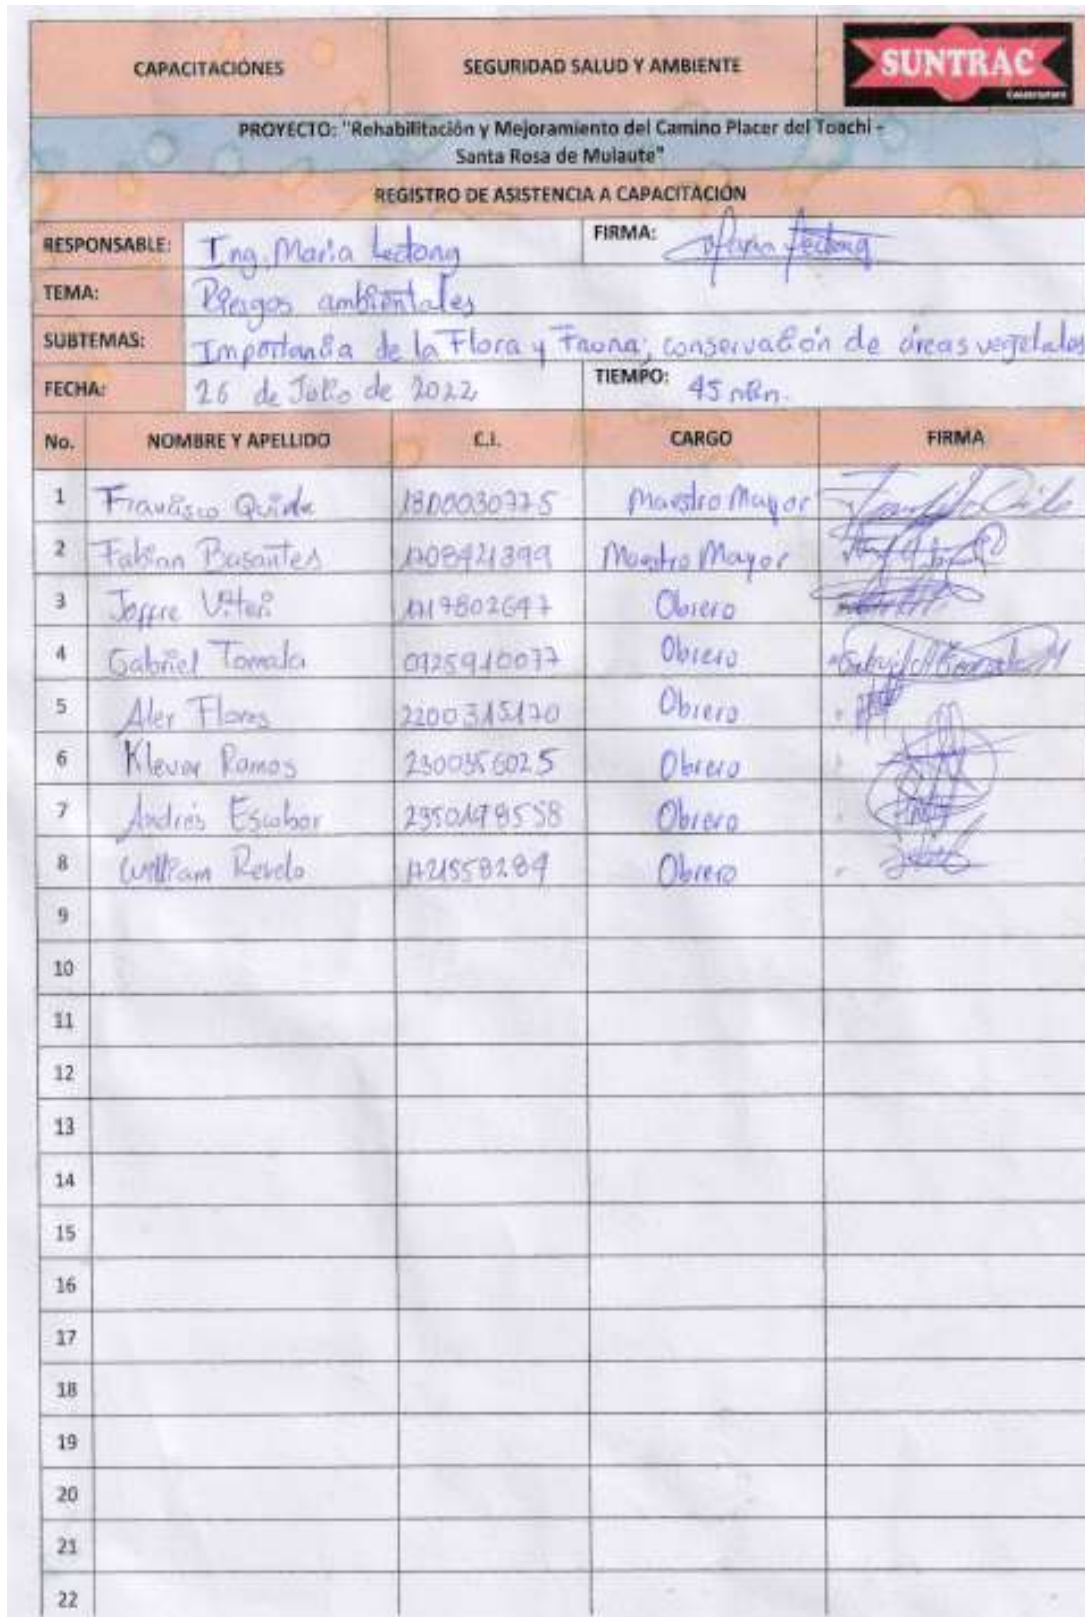 CAPACITACIONES SEGURIDAD SALUD Y AMBIENTE SUNTRAC
PROYECTO: "Rehabilitación y Mejoramiento del Camino Placer del Toachi -
Santa Rosa de Mulaute"
REGISTRO DE ASISTENCIA A CAPACITACIÓN
RESPONSABLE: Ing. Maria Lectong FIRMA:
TEMA: Riesgos ambientales
SUBTEMAS: Importancia de la Flora y Fauna; conservación de áreas vegetales
FECHA: 26 de Julio de 2022 TIEMPO: 45 min.
No. NOMBRE Y APELLIDO C.I. CARGO FIRMA
1 Francisco 1800030775 Maestro Mayor
2 Fabian Basantes 1708421399 Maestro Mayor
3 Joffre Viteri 1719802647 Obrero
4 Gabriel Tomala 0925910077 Obrero
5 Alex Flores 2200315170 Obrero
6 Klever Ramos 2300356025 Obrero
7 Andrés Escobar 2350178558 Obrero
8 William Revelo Obrero
9
10
11
12
13
14
15
16
17
18
19
20
21
22